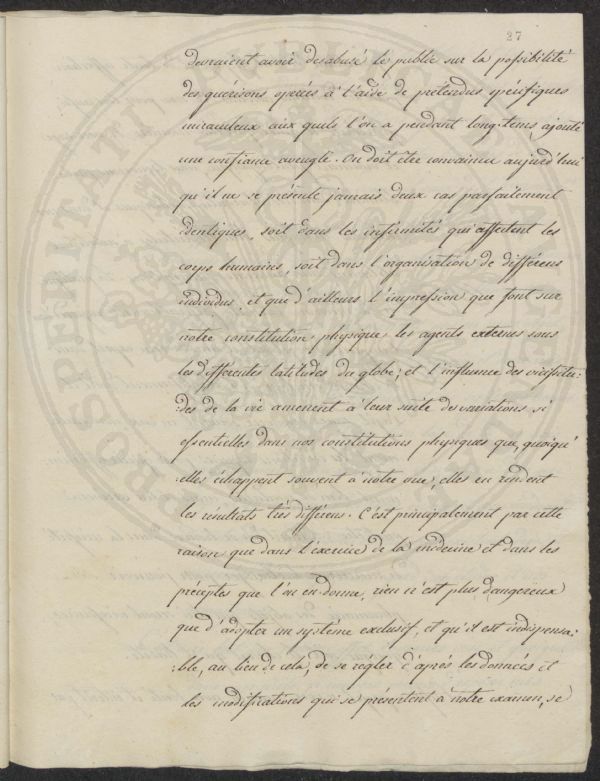 27
devraient avoir desabusé le public sur la possibilité
des guérisons opérées à l'aide de prétendus spécifiques
miraculeux aux quels l'on a pendant long-tems ajouté
une confiance aveugle. On doit être convaincu aujourd'hui
qu'il ne se présente jamais deux cas parfaitement
identiques, soit dans les infirmités qui affectent les
corps humains, soit dans l'organisation de différens
individus, et que d'ailleurs l'impression que font sur
notre constitution physique les agents externes sous
les différentes latitudes du globe; et l'influence des vicissitu:
:des de la vie amenent à leur suite des variations si
essentielles dans nos constitutions physiques que, quoiqu'
elles échappent souvent à notre vue, elles en rendent
les résultats très différens. C'est principalement par cette
raison que dans l'exercice de la médecine et dans les
préceptes que l'on en donne, rien n'est plus dangereux
que d'adopter un système exclusif, et qu'il est indispensa:
:ble, au lieu de cela, de se régler d'après les données et
les modifications qui se présentent à notre examen, se
PROSPERITATI